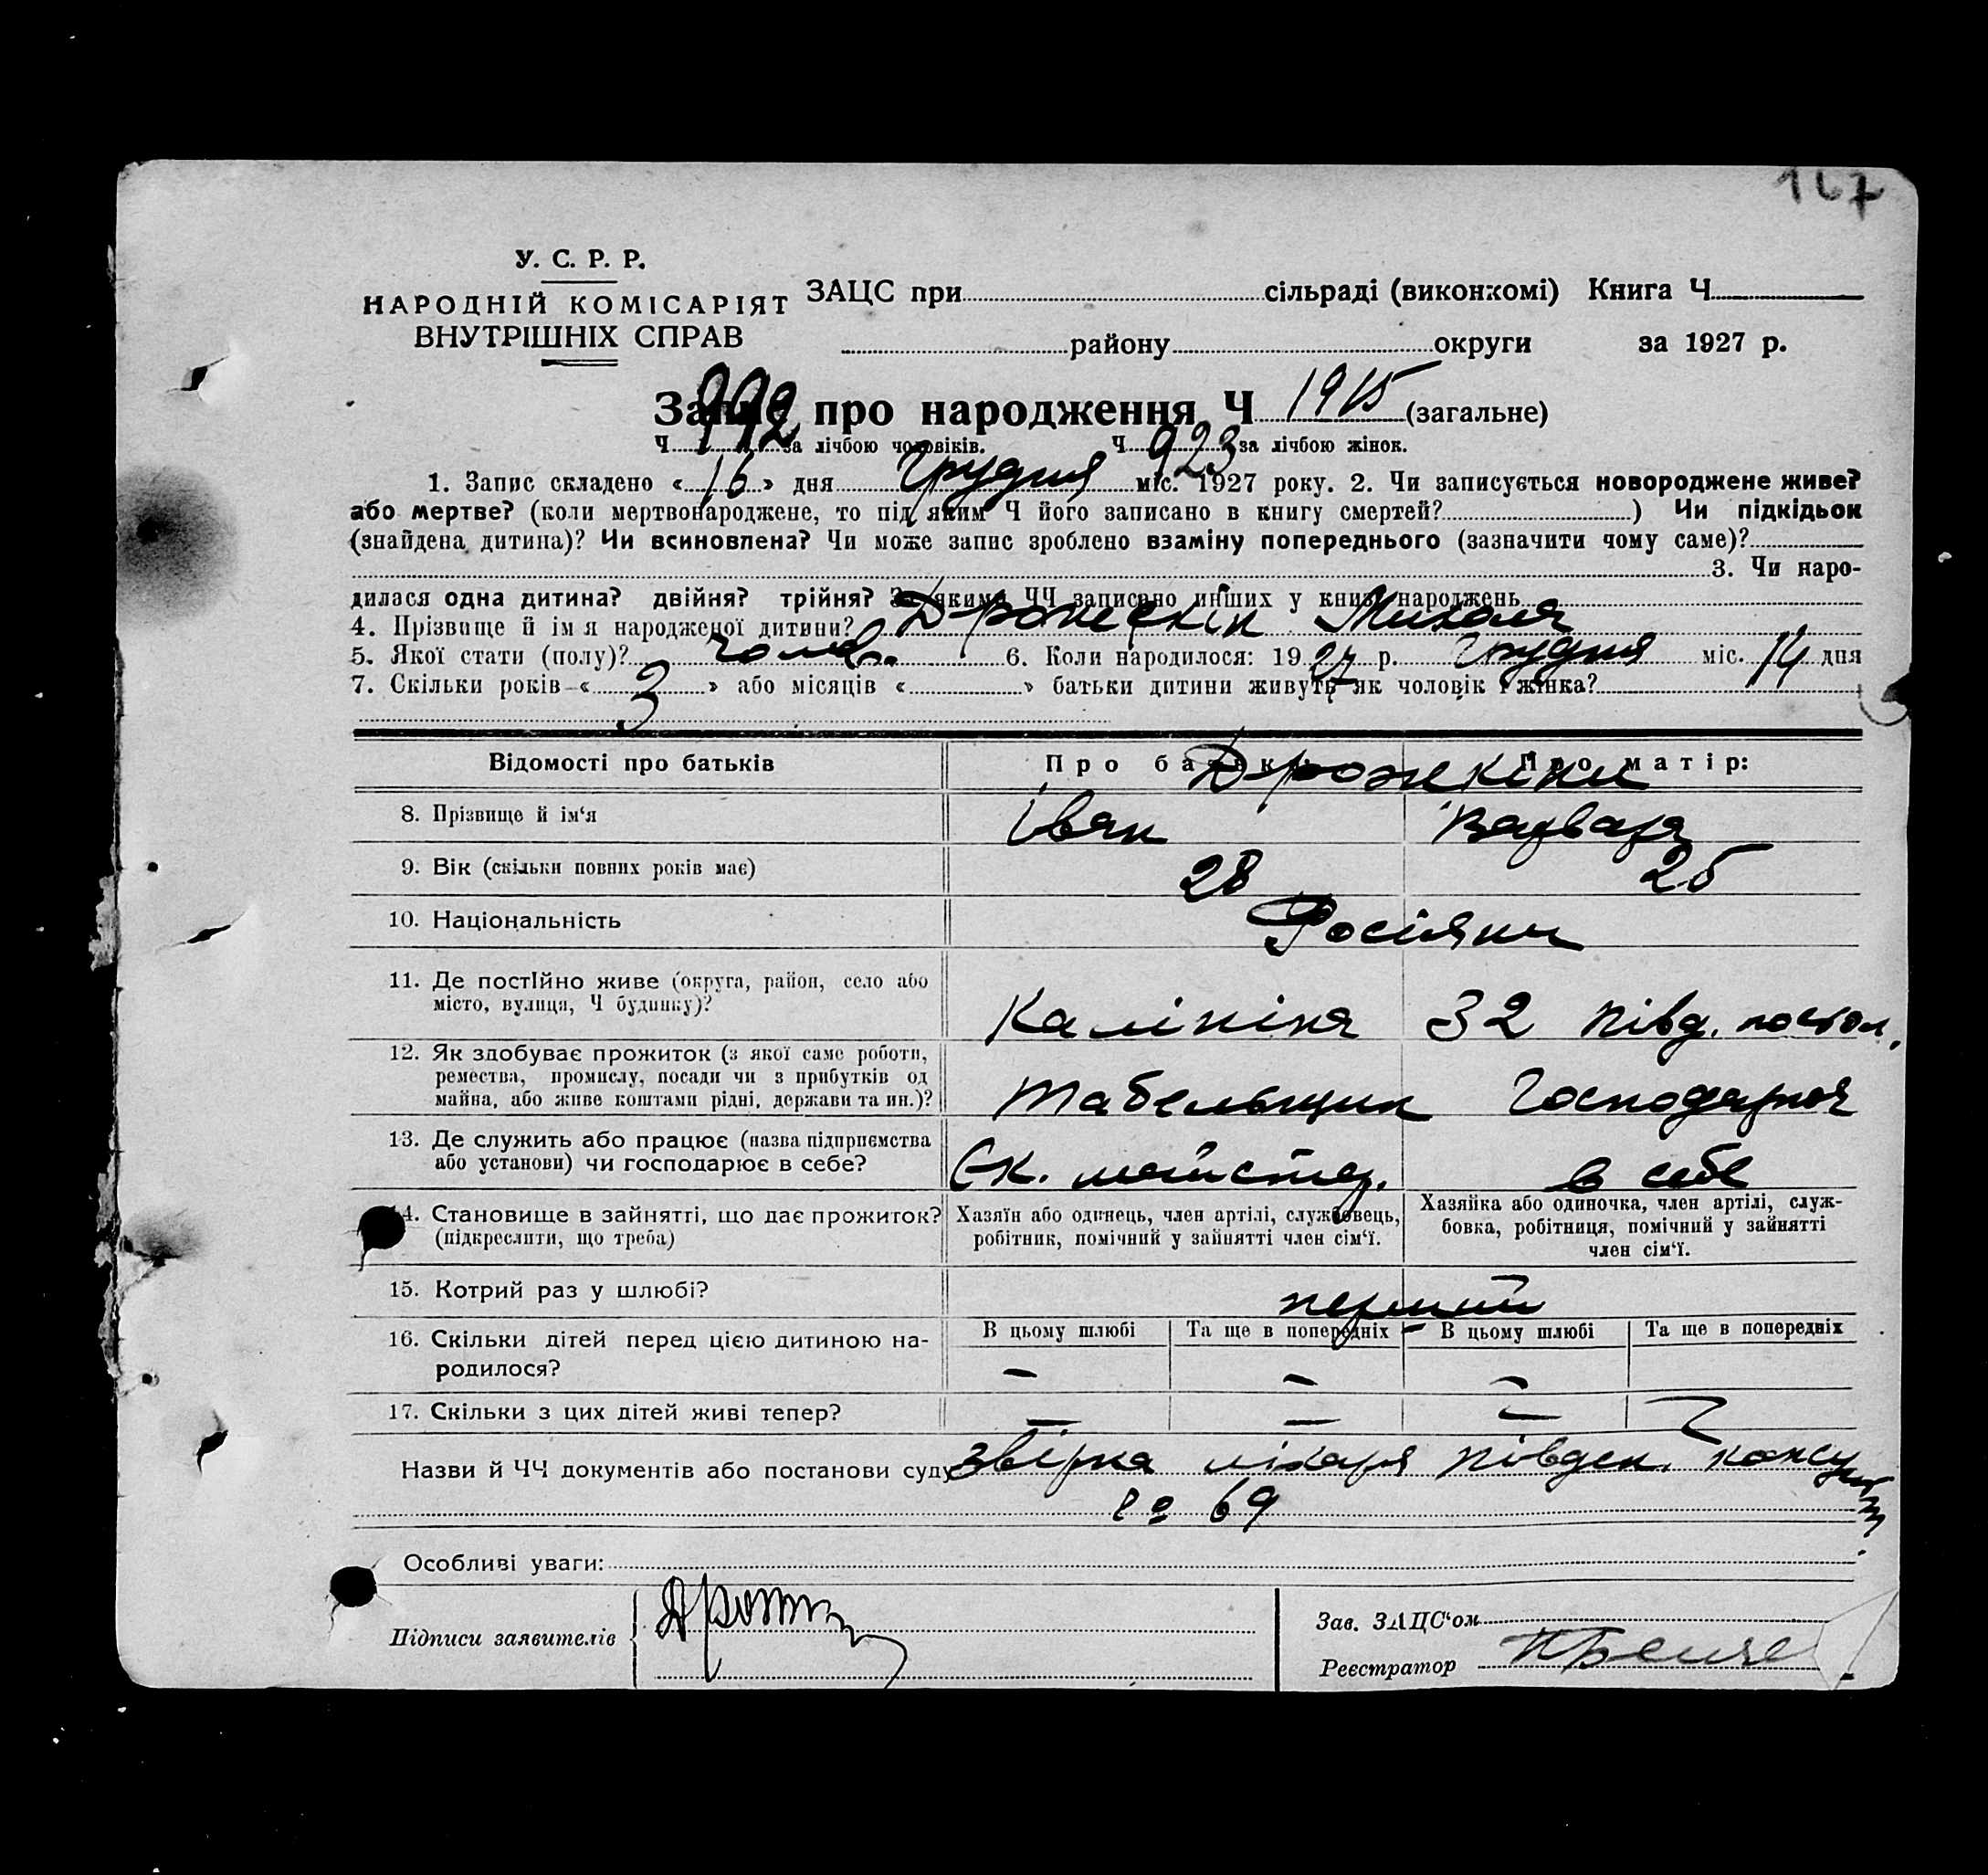 167
У. С. Р. Р.
НАРОДНІЙ КОМІСАРІЯТ
ВНУТРІШНІХ СПРАВ
ЗАЦС при сільраді (виконкомі) Книга Ч.
району округи за 1927 р.
Запис про народження Ч 1915 (загальне)
Ч. 992 за лічбою чоловіків. Ч. 923 за лічбою жінок.
1. Запис складено « 16 » дня Грудня міс. 1927 року. 2. Чи записується новороджене живе?
або мертве? (коли мертвонароджене, то під яким Ч його записано в книгу смертей? ) Чи підкідьок
(знайдена дитина)? Чи всиновлена? Чи може запис зроблено взаміну попереднього (зазначити чому саме)?
3. Чи наро-
дилася одна дитина? двійня? трійня? За якими ЧЧ записано инших у книзі народжень
4. Прізвище й ім я народженої дитини? Дрожескін Микола
5. Якої стати (полу)? чолов. 6. Коли народилося: 1927 р. Грудня міс. 14 дня
7. Скільки років «3» або місяців « » батьки дитини живуть як чоловік і жінка?
Відомості про батьків Про батька: Про матір:
Дрожжкіни
8. Прізвище й ім‘я Іван Варвара
9. Вік (скільки повних років має) 28 25
10. Національність Росіяни
11. Де постійно живе (округа, район, село або
місто, вулиця, Ч будинку)? Калініна 32 півд. посьол.
12. Як здобуває прожиток (з якої саме роботи,
ремества, промислу, посади чи з прибутків од
майна, або живе коштами рідні, держави та ин.)? Табельщик Господарноя
13. Де служить або працює (назва підприємства
або установи) чи господарює в себе? Ск. майстер. в себе
14. Становище в зайнятті, що дає прожиток?
(підкреслити, що треба)
Хазяїн або одинець, член артілі, службовець,
робітник, помічний у зайнятті член сім‘ї.
Хазяйка або одиночка, член артілі, служ-
бовка, робітниця, помічний у зайнятті
член сім‘ї.
15. Котрий раз у шлюбі? перший
16. Скільки дітей перед цією дитиною на-
родилося?
В цьому шлюбі Та ще в попередніх В цьому шлюбі Та ще в попередніх
— — — 
17. Скільки з цих дітей живі тепер? — — — —
Назви й ЧЧ документів або постанови суду звірка лікаря півден. консульт.
69
Особливі уваги:
Підписи заявителів
Зав. ЗАЦС‘ом
Реєстратор